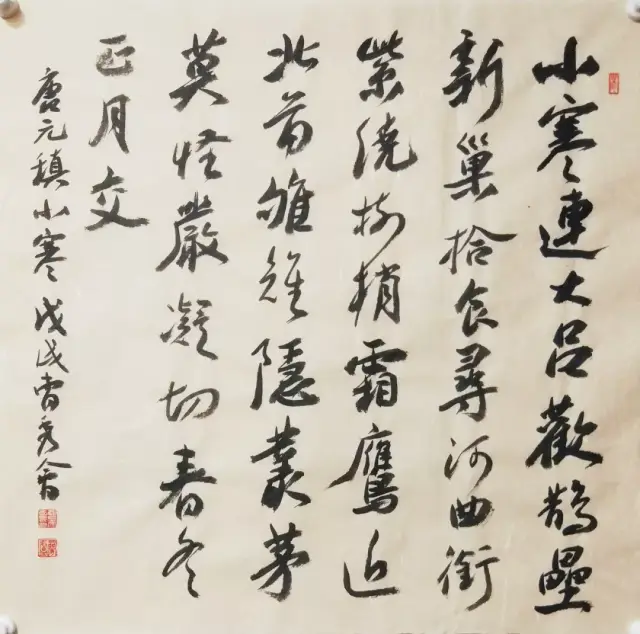 小寒連大呂歡鵲壘
新巢拾食尋河曲銜
紫繞樹梢霜鷹近
北首雊雉隱叢茅
莫怪嚴凝切春冬
正月交
唐元稹小寒戊戌